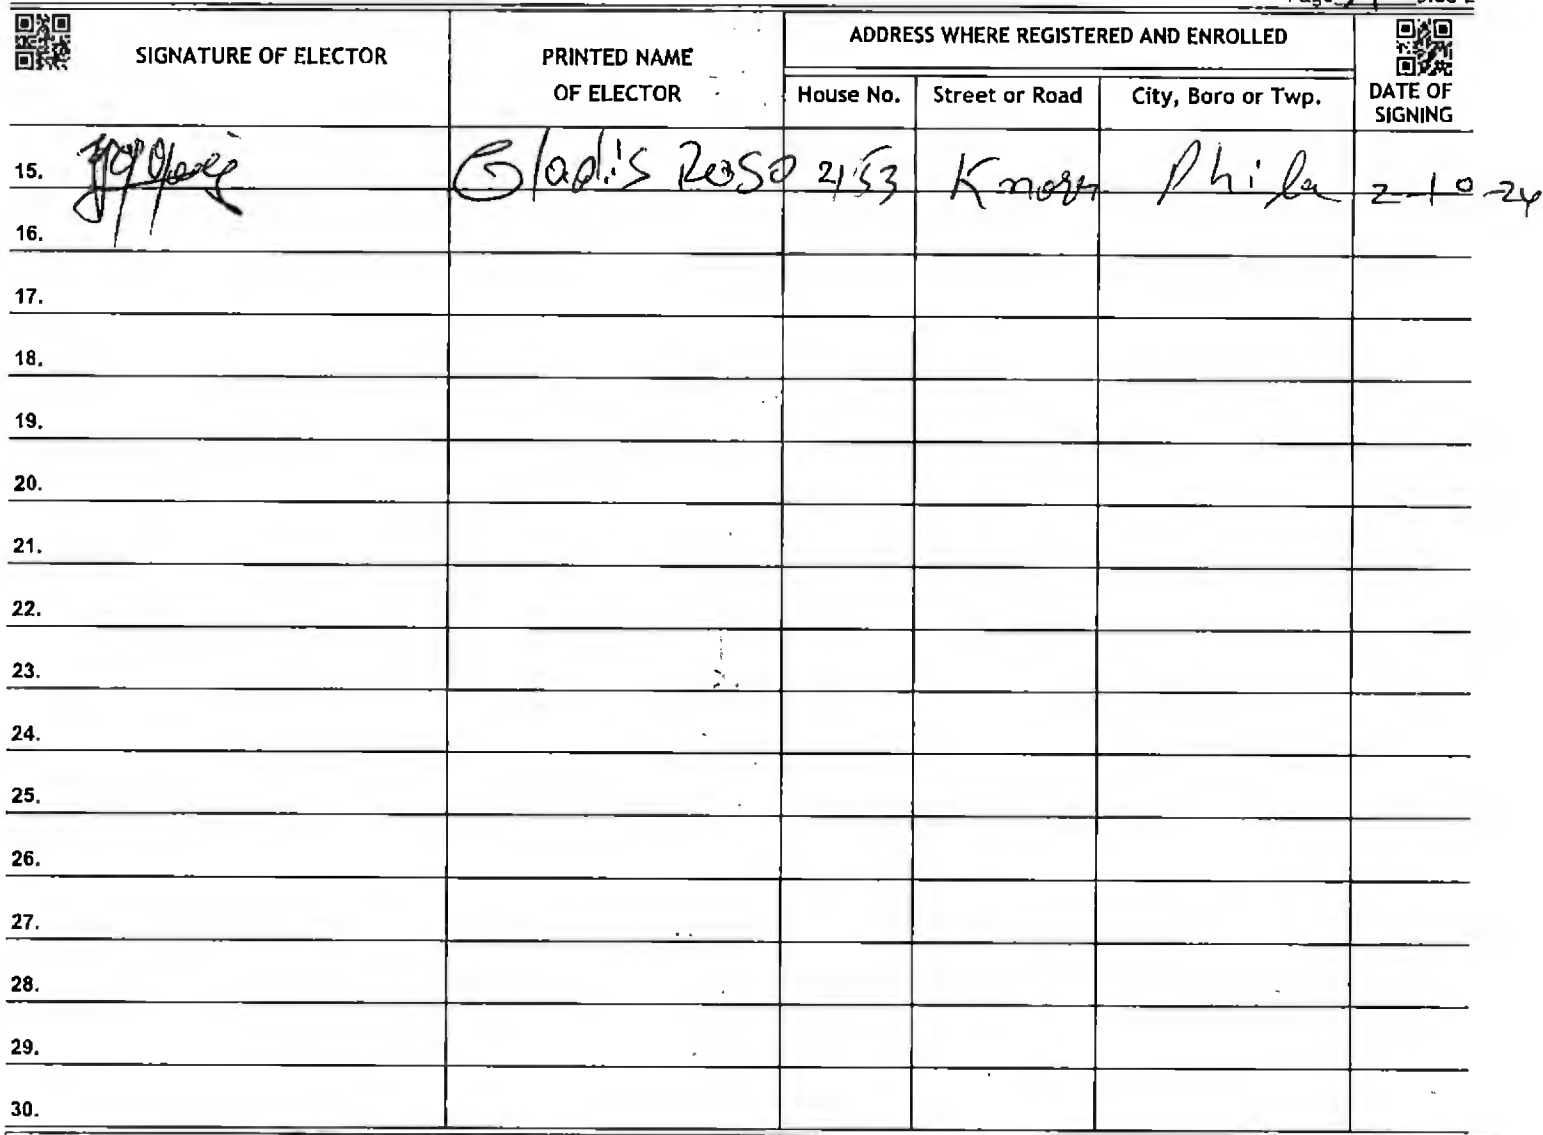 SIGNATURE OF ELECTOR
PRINTED NAME
OF ELECTOR
ADDRESS WHERE REGISTERED AND ENROLLED
House No. Street or Road City, Boro or Twp.
DATE OF
SIGNING
15. Gladis Roso 2153 Knorr Phila 2-10-24
16.
17.
18.
19.
20.
21.
22.
23.
24.
25.
26.
27.
28.
29.
30.